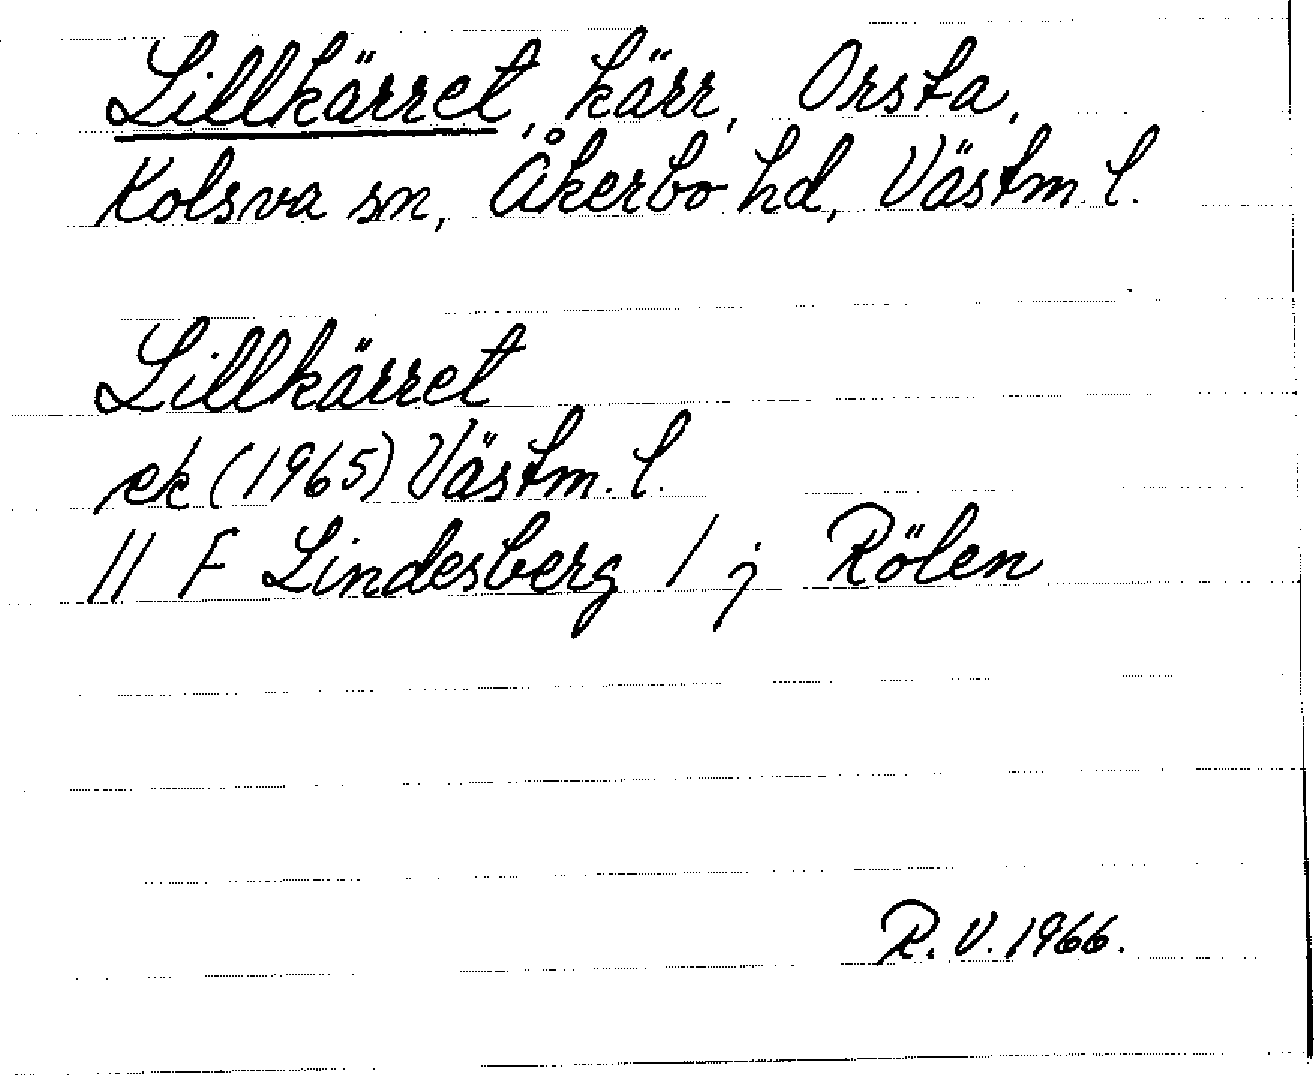 Lillkärret, kärr, Orsta,
Kolsva sn, Åkerbo hd, Västm. l.
Lillkärret
ek (1965) Västm. l.
11 F Lindesberg 1 j Rölen
R. V. 1966.